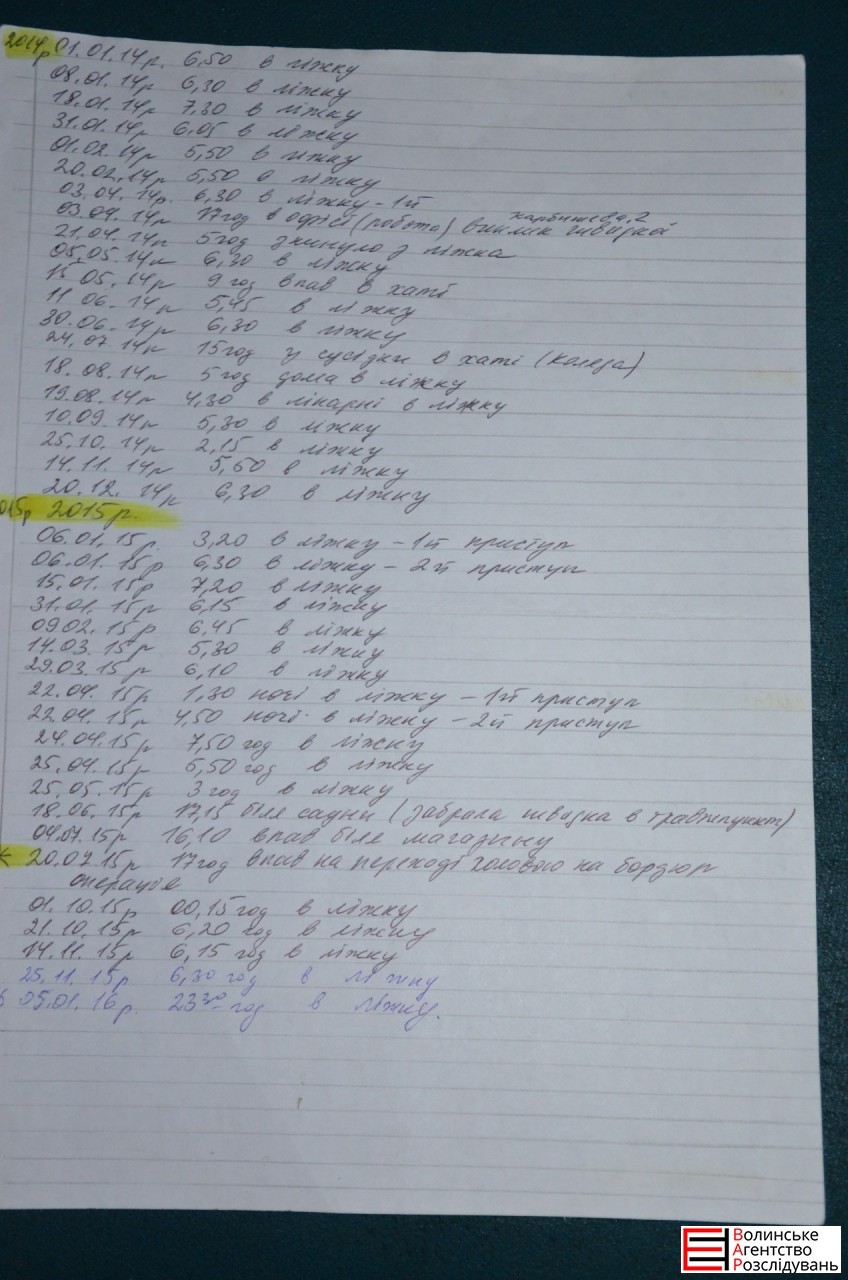 2014р 01.01.14р. 6,50 в ліжку
08.01.14р 6,30 в ліжку
18.01.14р 7,30 в ліжку
31.01.14р 6,05 в ліжку
01.02.14р 5,50 в ліжку
20.02.14р 5,50 в ліжку
03.04.14р. 6,30 в ліжку - 1й
Карбишева, 2
03.04.14р 17год в офісі (робота) виклик швидкої
21.04.14р 5год зкинуло з ліжка
05.05.14р 6,30 в ліжку
15.05.14р 9 год впав в хаті
11 06.14р 5,45 в ліжку
30.06.14р 6,30 в ліжку
24.07 14р 15год у сусідки в хаті (
18.08.14р 5 год дома в ліжку
19.08.14р 4,30 в лікарні в ліжку
10.09.14р 5,30 в ліжку
25.10.14р 2,15 в ліжку
14.11.14р 5,50 в ліжку
20.12.14р 6,30 в ліжку
015р 2015р.
06.01.15р. 3,20 в ліжку - 1й приступ
06.01.15р 6,30 в ліжку - 2й приступ
15.01.15р 7,20 в ліжку
31.01.15р 6,15 в ліжку
09.02.15р 6,45 в ліжку
14.03.15р 5,30 в ліжку
29.03.15р 6,10 в ліжку
22.04.15р 1,30 ночі в ліжку - 1й приступ
22.04.15р 4,50 ночі в ліжку - 2й приступ
24.04.15р 7,50 год в ліжку
25.04.15р 5,50 год в ліжку
25.05.15р 3 год в ліжку
18.06.15р 17,15 біля садни (забрала швидка в травмпункт)
04.07.15р 16,10 впав біля магазину
20.07.15р 17год впав на переході головою на бордюр
операція
01.10.15р 00,15 год в ліжку
21.10.15р 6,20 год в ліжку
14.11.15р 6,15 год в ліжку
25.11.15р 6,30 год в ліжку
05.01.16р. 23 30 год в ліжку.
Волинське
Агентство
Розслідувань